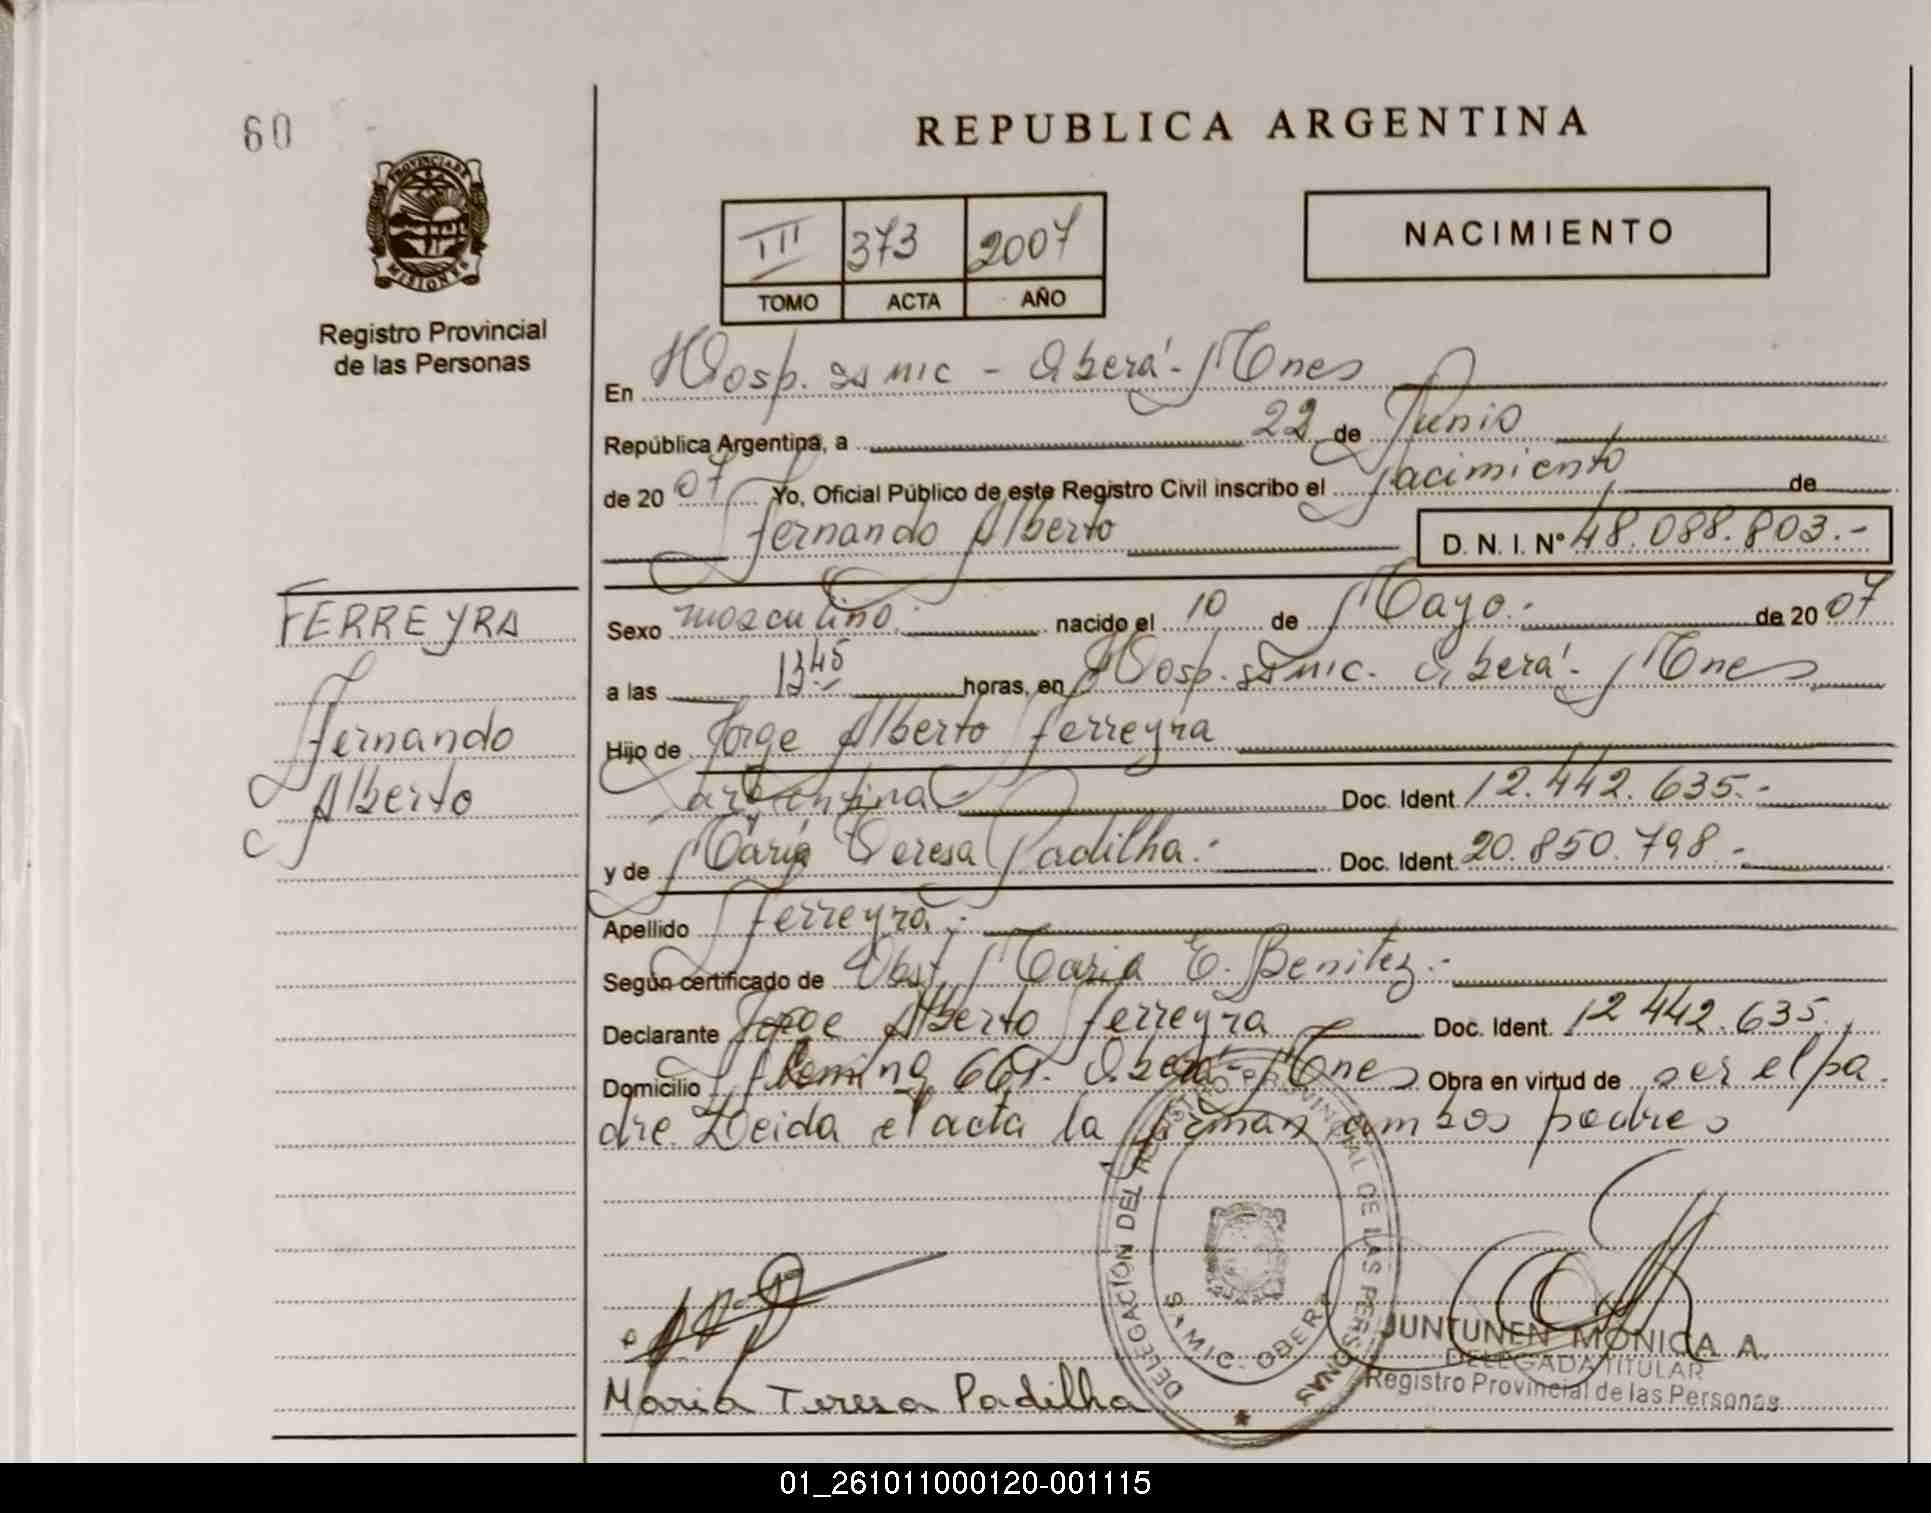 60
REPUBLICA ARGENTINA
PROVINCIA DE
MISIONES
Registro Provincial
de las Personas
III 373 2007
TOMO ACTA AÑO
NACIMIENTO
En Hosp. SAMIC - Oberá - Mnes
República Argentina, a 22 de Junio
de 2007 Yo, Oficial Público de este Registro Civil inscribo el Nacimiento de
Fernando Alberto D. N. I. Nº 48.088.803.-
FERREYRA
Fernando
Alberto
Sexo masculino. nacido el 10 de Mayo.- de 2007
a las 1345 horas, en Hosp. SAMIC. Oberá - Mnes
Hijo de Jorge Alberto Ferreyra
argentina - Doc. Ident 12.442.635.-
y de María Teresa Padilha.- Doc. Ident. 20.850.798.-
Apellido Ferreyra.-
Según certificado de Obst. Maria E. Benitez.-
Declarante Jorge Alberto Ferreyra Doc. Ident. 12 442.635.
Domicilio Fleming 661. Oberá - Mnes Obra en virtud de ser el pa
dre. Leida el acta la firman ambos padres
DELEGACION DEL REGISTRO PROVINCIAL DE LAS PERSONAS
SAMIC. OBERA
JUNTUNEN MONICA A.
DELEGADA TITULAR
Registro Provincial de las Personas
Maria Teresa Padilha
01_261011000120-001115